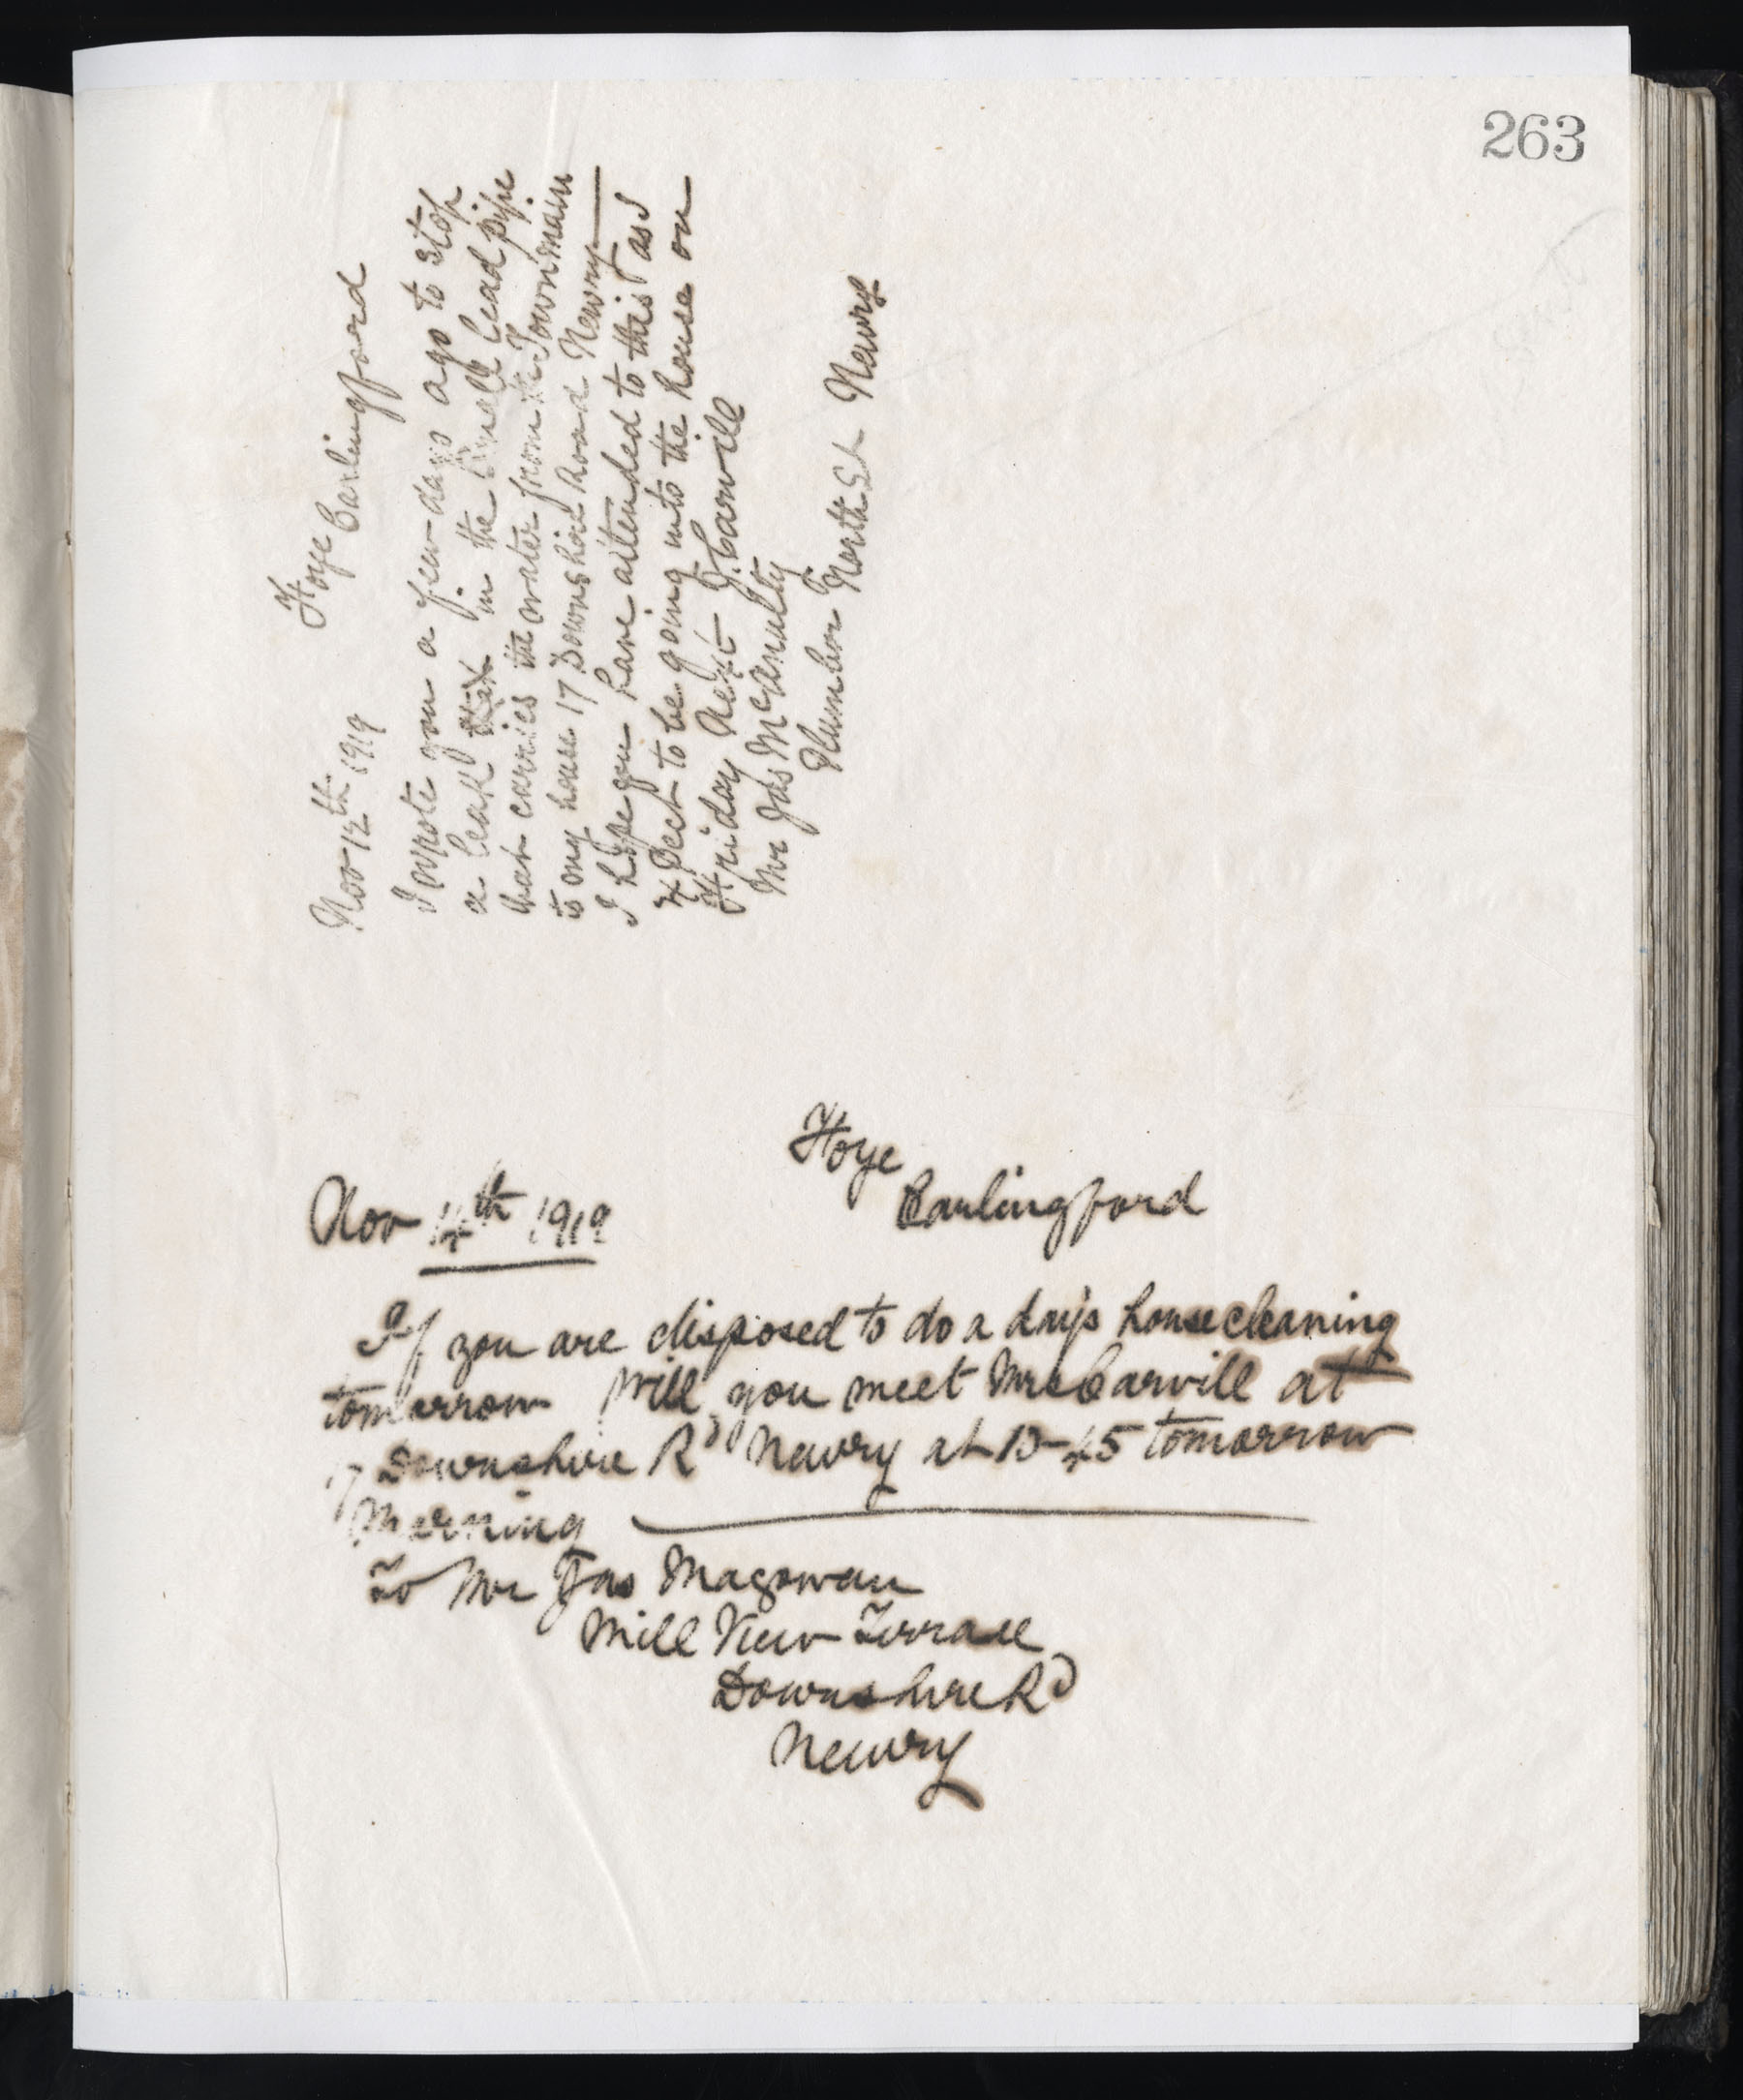 263
Foye
Carlingford
Nov 12th 1919
I wrote you a few days ago to stop
a leak in the small lead pipe
that carries the water from the Town main
to my house 17 Downshire Road Newry
I hope you have attended to this as I
expect to be going into the house on
Friday next J. Carvill
Mr Jas McAnulty
Plumber North St Newry
Foye
Carlingford
Nov 14th 1919
If you are disposed to do a days housecleaning
tomorrow will you meet Mrs Carvill at
17 Downshire Rd Newry at 10-45 tomorrow
Morning
To Mr Jas Magowan
Mill View Terrace
Downshire Rd
Newry